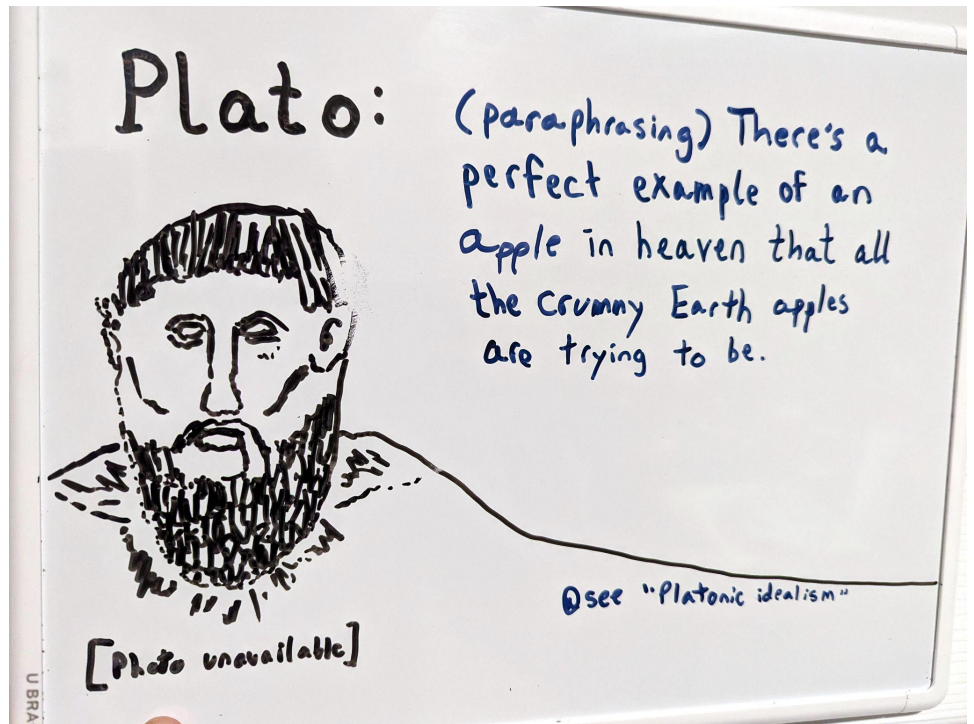 Plato:
(paraphrasing) There's a
perfect example of an
apple in heaven that all
the crummy Earth apples
are trying to be.
@see "Platonic idealism"
[Photo unavailable]
U BRA